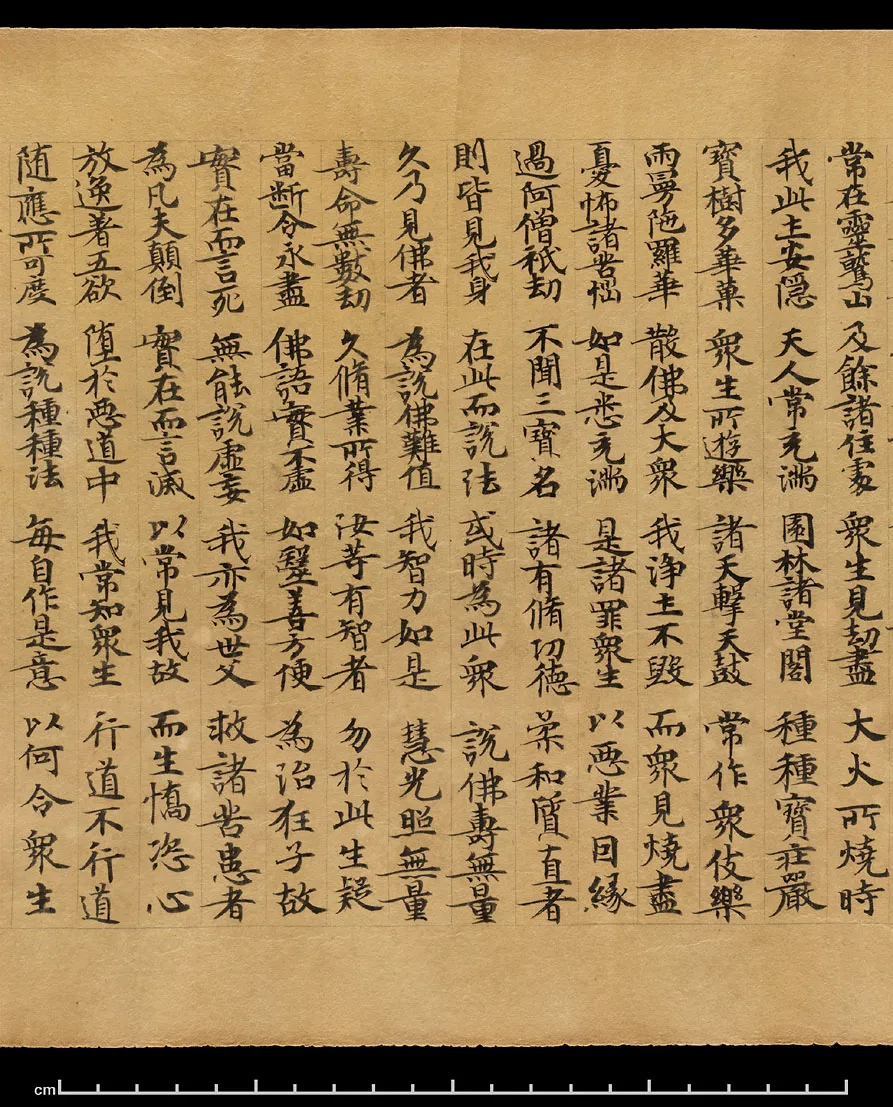 常在靈鷲山 及餘諸住處 衆生見劫盡 大火所燒時
我此土安隱 天人常充滿 園林諸堂閣 種種寶莊嚴
寶樹多華菓 衆生所遊樂 諸天擊天鼓 常作衆伎樂
雨曼陁羅華 散佛及大衆 我淨土不毀 而衆見燒盡
憂怖諸苦惱 如是悉充滿 是諸罪衆生 以惡業因緣
過阿僧祇劫 不聞三寶名 諸有脩功德 柔和質直者
則皆見我身 在此而說法 或時為此衆 說佛壽無量
久乃見佛者 為說佛難值 我智力如是 慧光照無量
壽命無數劫 久脩業所得 汝等有智者 勿於此生疑
當斷令永盡 佛語實不虛 如醫善方便 為治狂子故
實在而言死 無能說虛妄 我亦為世父 救諸苦患者
為凡夫顛倒 實在而言滅 以常見我故 而生憍恣心
放逸著五欲 墮於惡道中 我常知衆生 行道不行道
随應所可度 為說種種法 每自作是意 以何令衆生
cm